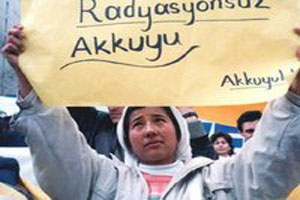 Radyasyonsuz
Akkuyu
Akkuyu